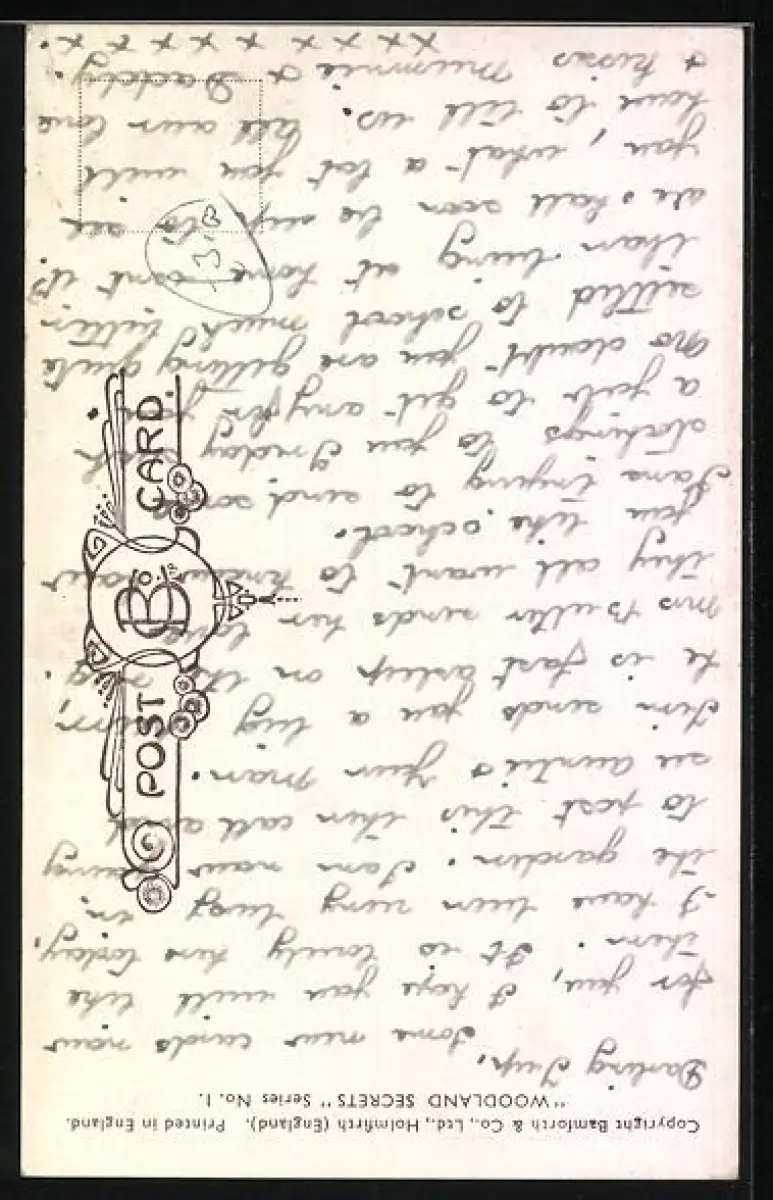 Copyright Bamforth & Co., Ltd., Holmfirth (England). Printed in England.
"WOODLAND SECRETS" Series No. 1.
Darling
Some new cards now
for you, I hope you will like
them. It is lovely here today,
I have been very busy in
the garden. Iam now going
to post this then call and
see aunties your man.
Jim sends you a big
he is fast asleep on the rug.
Mrs Butler sends her love
they all want to know how
you like school.
Iam trying to send some
stockings to you Friday such
a job to get any for you.
No doubt you are getting quite
settled to school much better
than being at home isnt it?
We shall soon be up to see
you, what a lot you will
have to tell us. All our love
& kisses Mummie & Daddy.
x x x x x x x x x
POST CARD.
B & Co. Ltd